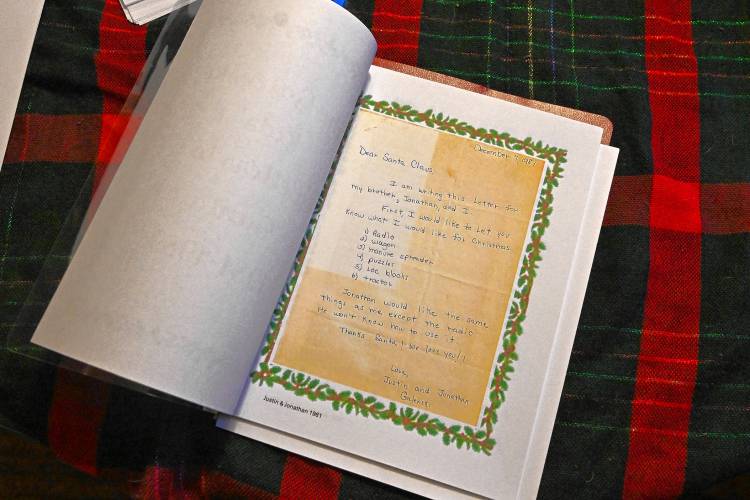 December 9, 1981
Dear Santa Claus
I am writing this letter for
my brother, Jonathan, and I.
First, I would like to let you
know what I would like for Christmas.
1) Radio
2) wagon
3) manure spreader
4) puzzles
5) Loc blocks
6) tractor
Jonathan would like the same
things as me except the radio
He won't know how to use it.
Thanks Santa, love you!!
Love,
Justin and Jonathan
Justin & Jonathan 1981